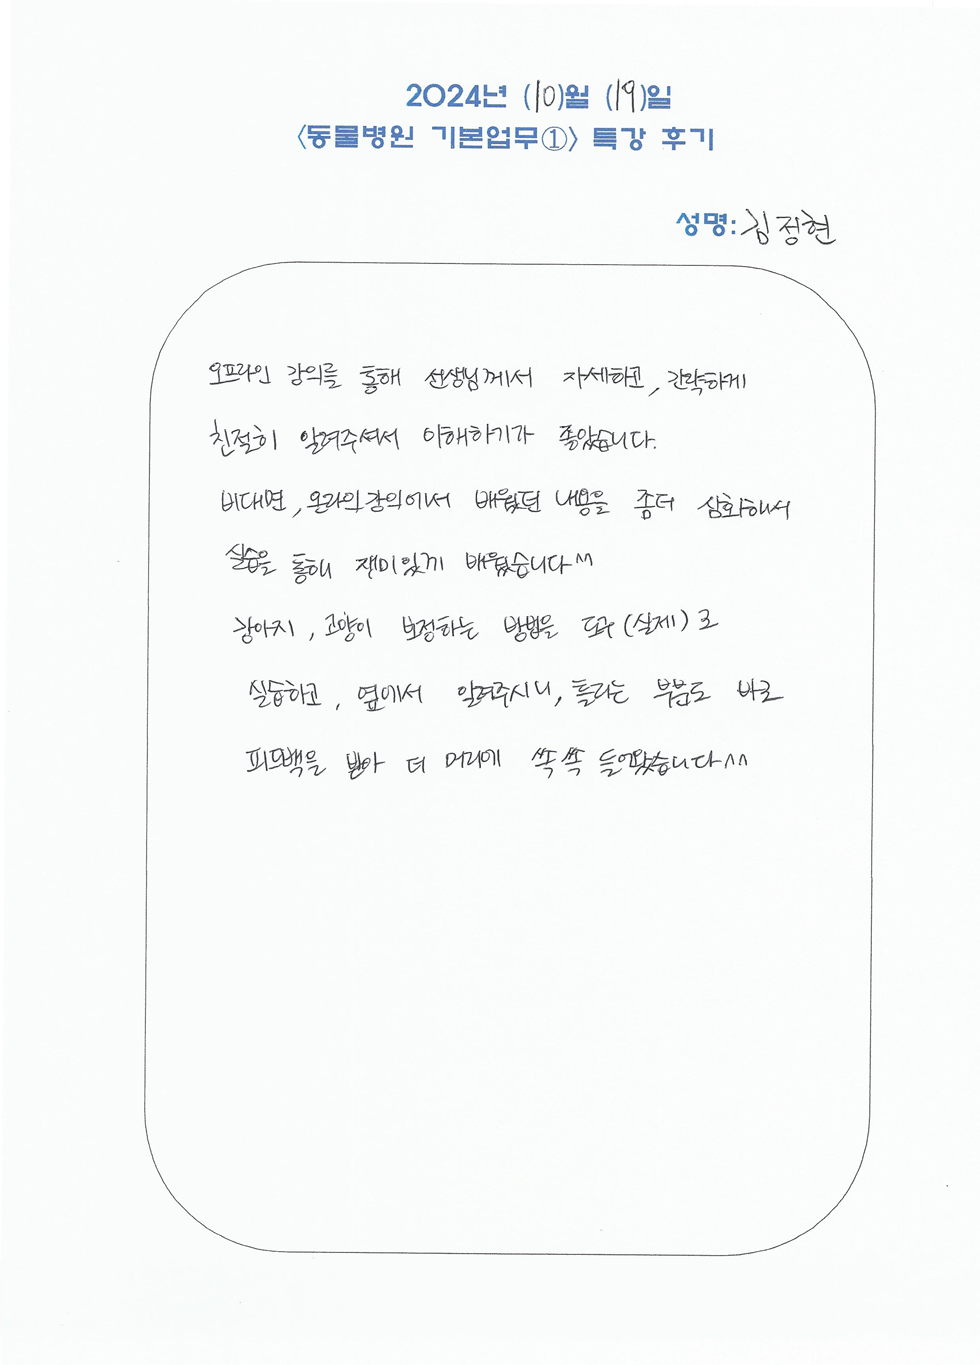 2024년 (10)월 (19)일
<동물병원 기본업무①> 특강 후기
성명: 김정현
오프라인 강의를 통해 선생님께서 자세하고, 간략하게
친절히 알려주셔서 이해하기가 좋았습니다.
비대면, 온라인강의에서 배웠던 내용을 좀더 심화해서
실습을 통해 재미있게 배웠습니다^^
강아지, 고양이 보정하는 방법을 도구(실제)로
실습하고, 옆에서 알려주시니, 틀리는 부분도 바로
피드백을 받아 더 머리에 쏙쏙 들어왔습니다^^